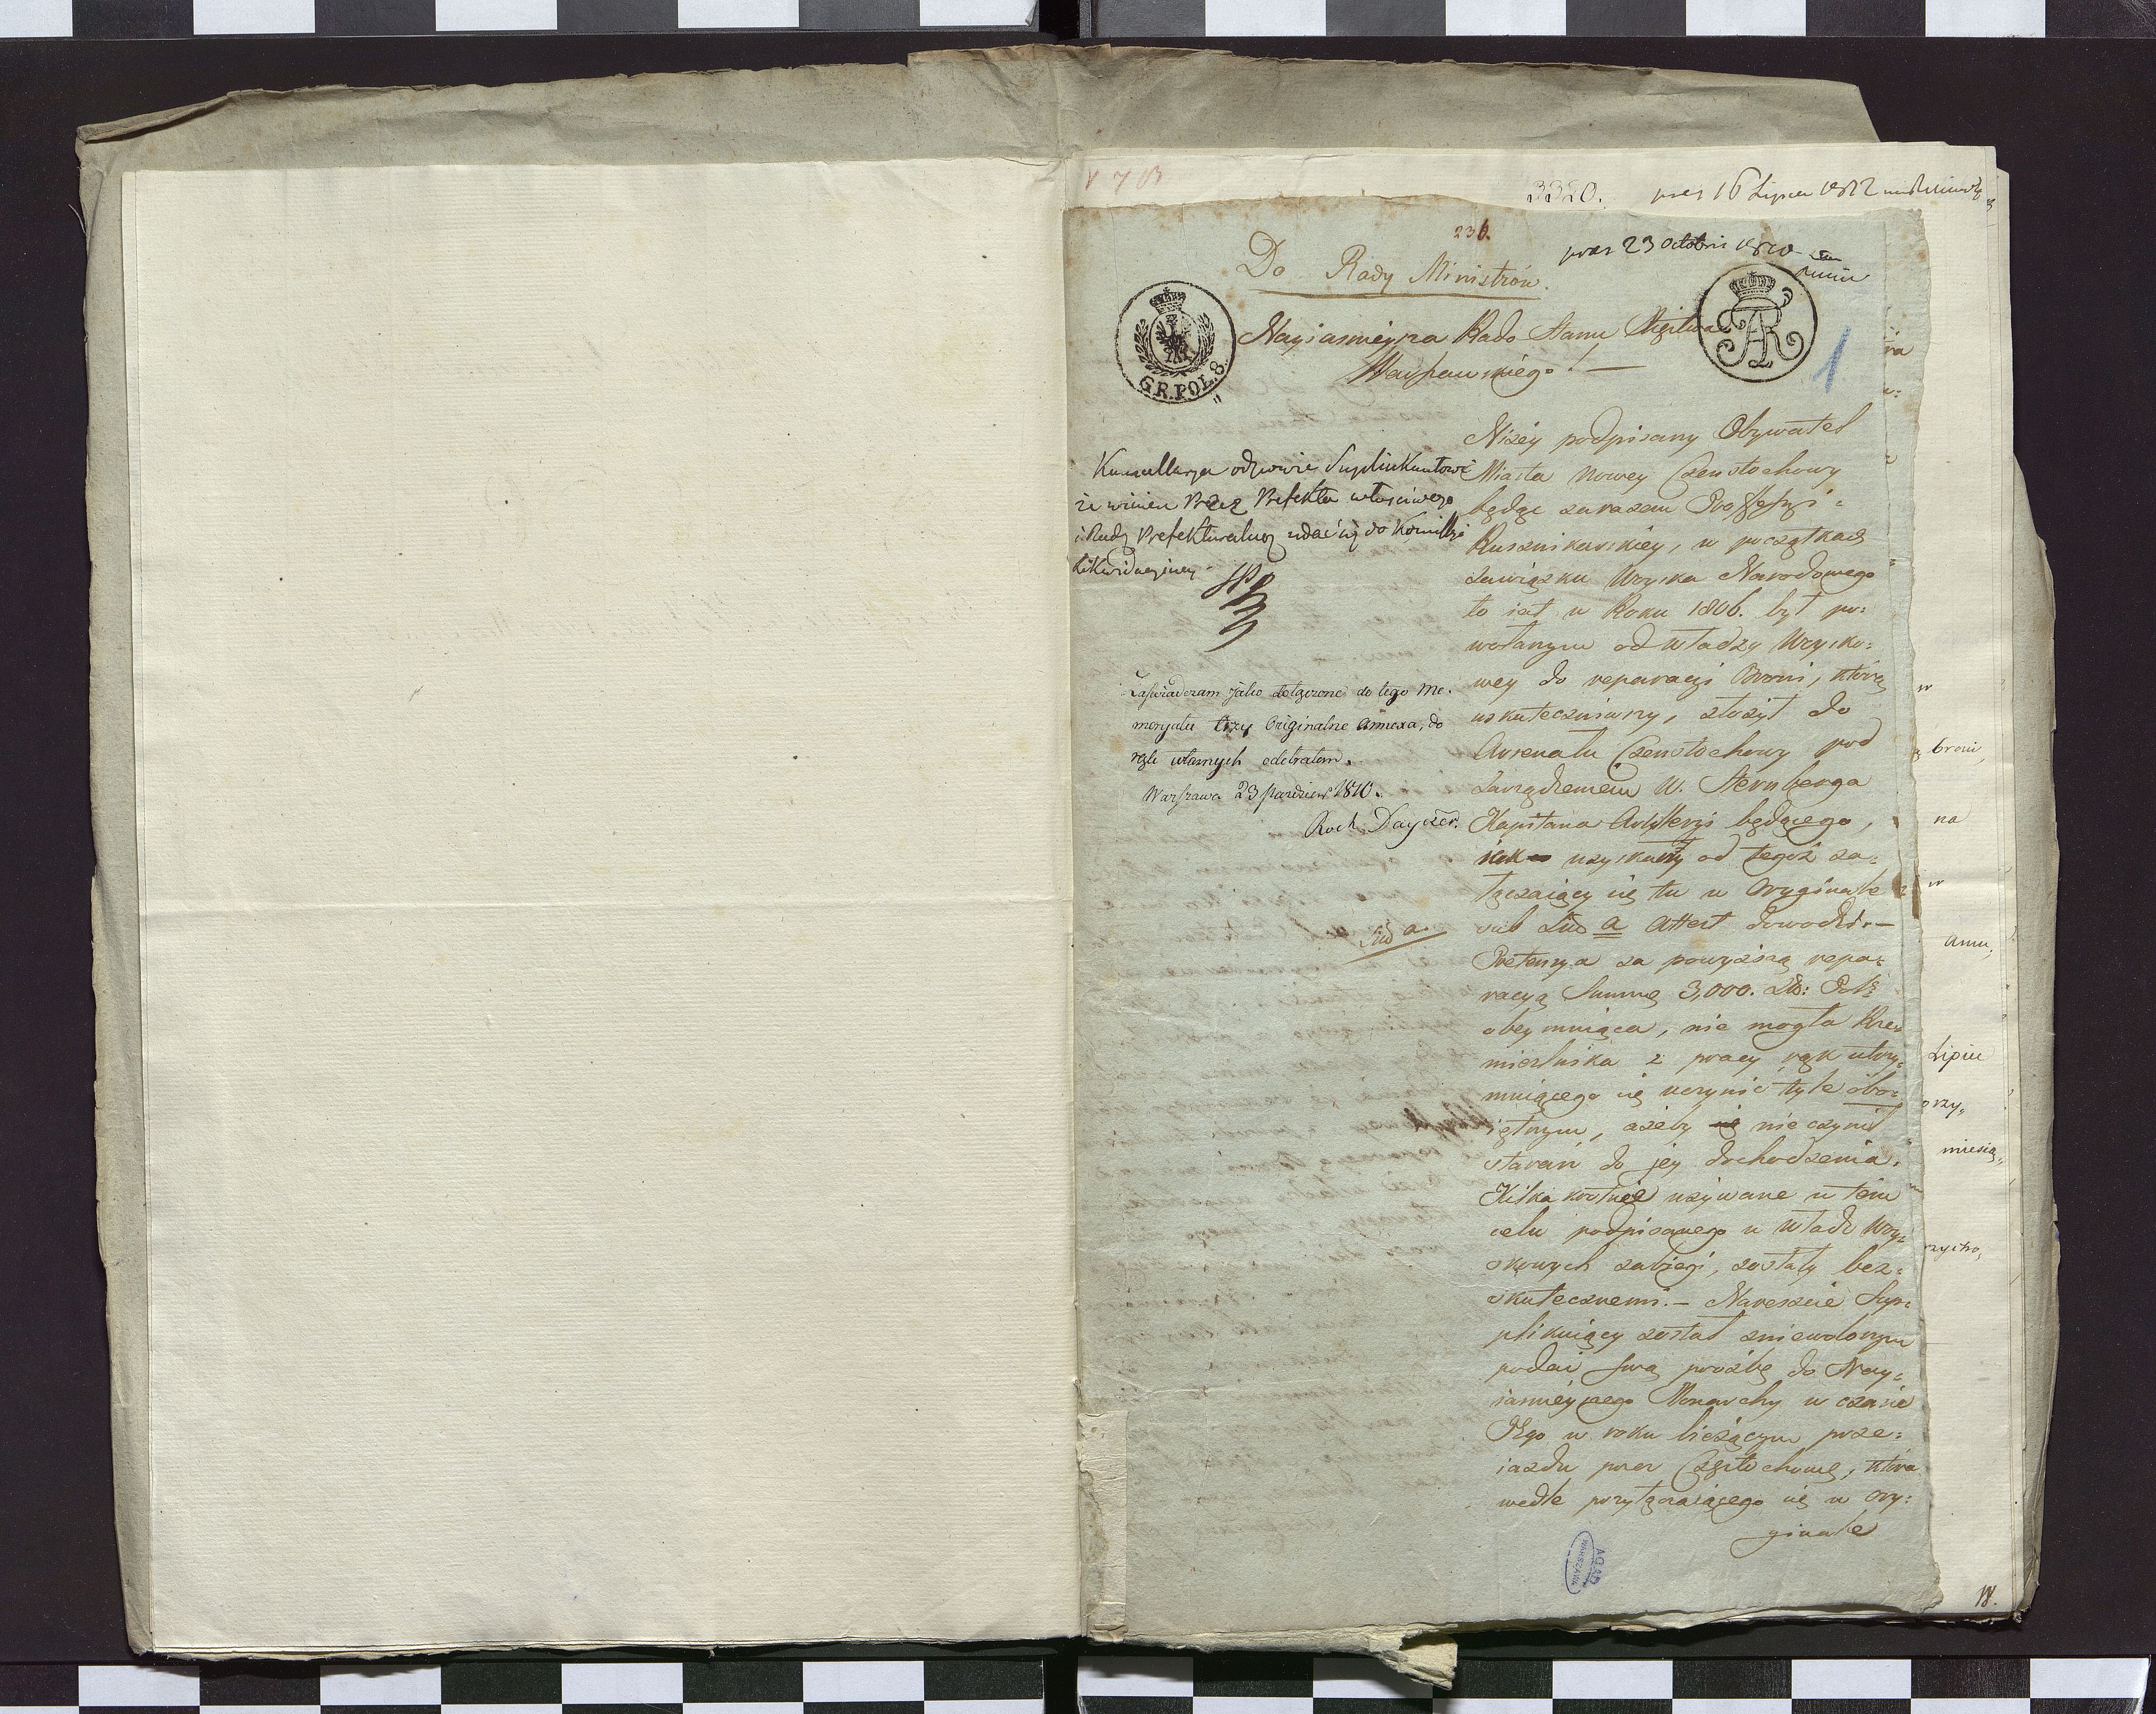 3320.
pres 16 Lipca 1812
236.
pres 23 Octobris 1810
Do Rady Ministrów.
GR.POL.8.
Nayiasnieysza Rado Stanu Xięstwa
Warszawskiego! —
1
Kancellarya odpowie Suplikantowi
że winien Przez Prefekta właściwego
i Radę Prefekturalną udać się do Kommissyi
Likwidacyiney.
Zaswiadczam jako dołączone do tego Me-
moryału trzy Originalne Annexa, do
rąk własnych odebrałem.
Warszawa 23 Pazdzier 1810.
Roch Dayczer.
Niżéy podpisany Obywatel
Miasta Nowey Czenstochowy
będąc zarazem Professyi=
Rusznikarskiey, w początkach
Zawiązku Woyska Narodowego
to iest w Roku 1806. był po=
wołanym od Władzy Woysko=
wey do reparacyi Broni, którą
uskuteczniwszy, złożył do
Arsenału Czenstochowy pod
Zarządzeniem W. Sternberga
Kapitana Artylleryi będącego,
iak uzyskany od tegoż za=
łączaiący się tu w Oryginale
sub Lit a Attest dowodzi.—
Lit a.
Pretensya za powyższą repa=
racyą Summę 3,000. Zło: Pol:
obeymuiąca, nie mogła Rze=
mieslnika z pracy rąk utrzy=
muiącego się uczynić tyle obo=
iętnym, ażeby nie czynił
starań do jey dochodzenia.
Kilka krotnie używane w tém
celu podpisanego u Władz Woy=
skowych zabiegi, zostały bez=
skutecznemi.— Nareszcie Sup=
plikuiący został zniewolonym
podać swą prozbę do Nay=
iasnieyszego Monarchy w czasie
Jego w roku bieżącym prze=
iazdu przez Częstochowę, która
wedle przyłączaiącego się w Ory=
ginale
broni,
na
w
Lipiu
miesią=
AGAD
WARSZAWA
18.